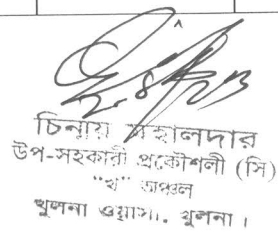 চিন্ময় মহালদার
উপ-সহকারী প্রকৌশলী (সি)
"খ" অঞ্চল
খুলনা ওয়াসা, খুলনা।